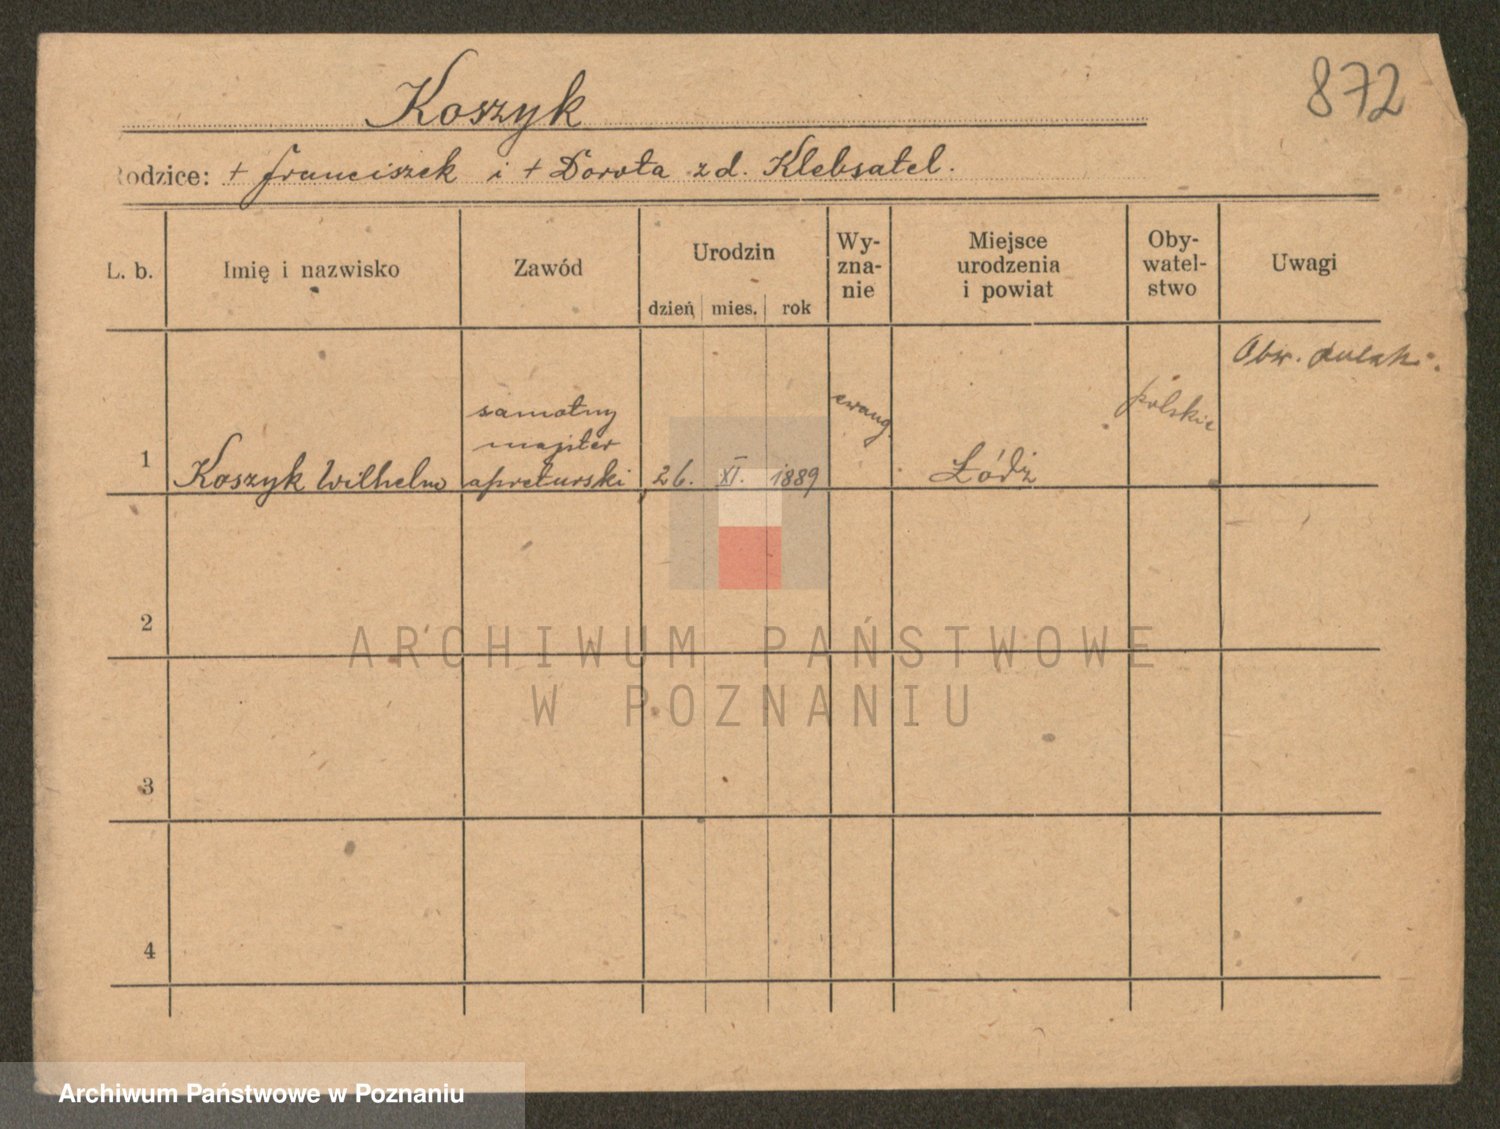 Koszyk
872
Rodzice: + Franciszek i + Dorota z d. Klebsatel.
L. b. Imię i nazwisko Zawód Urodzin dzień mies. rok Wy-
zna-
nie Miejsce
urodzenia
i powiat Oby-
watel-
stwo Uwagi
1 Koszyk Wilhelm samotny
majster
apreturski 26. XI. 1889 ewang. Łódź polskie Obw.
2
3
4
ARCHIWUM PAŃSTWOWE
W POZNANIU
Archiwum Państwowe w Poznaniu